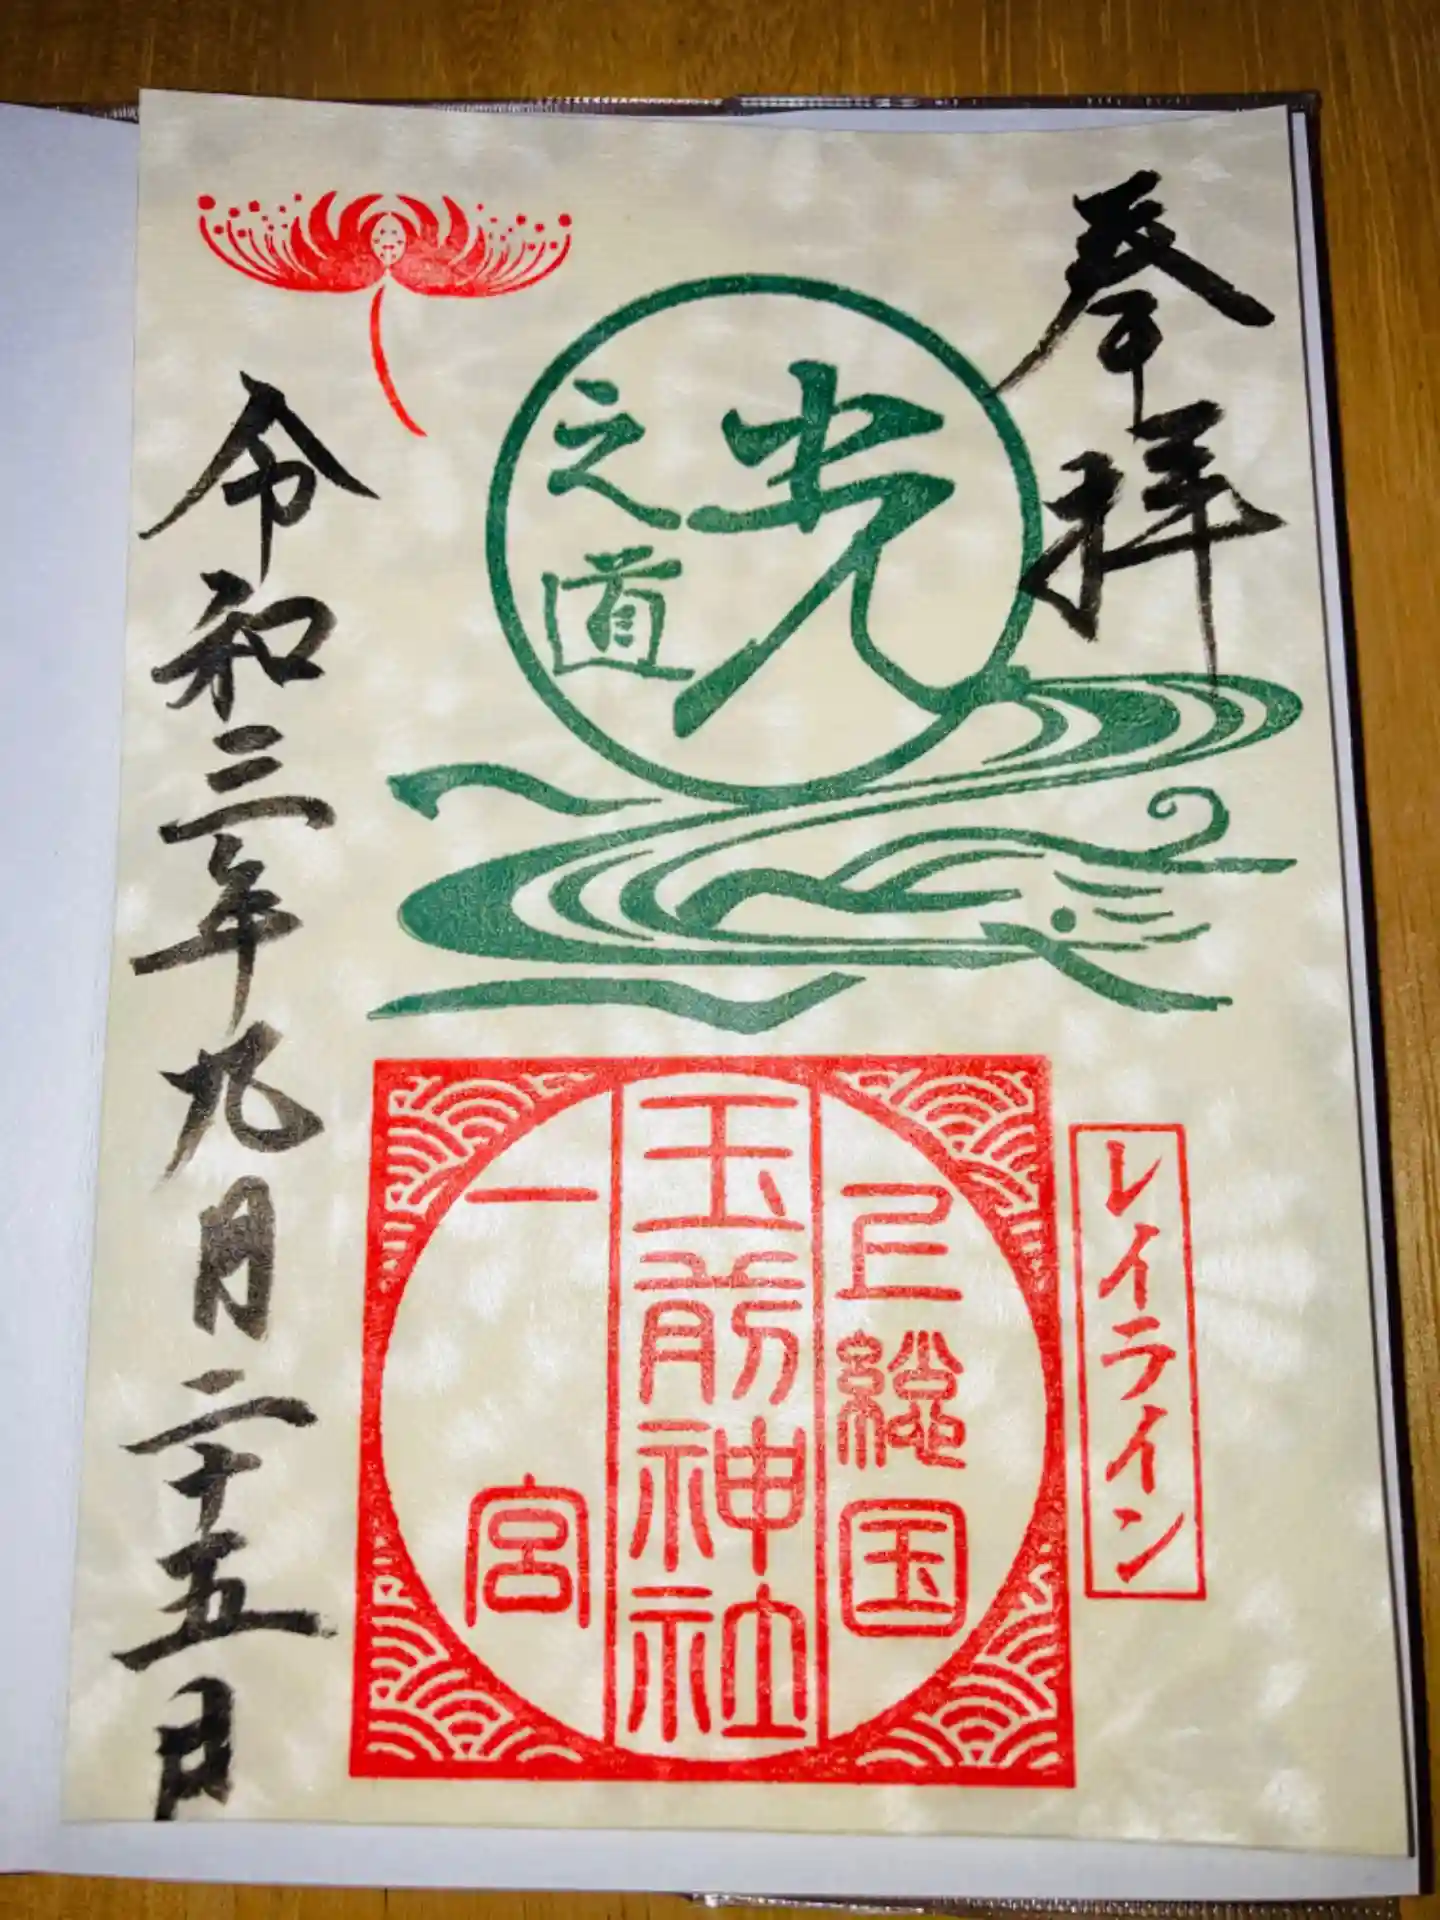 奉拝
光
之道
レイライン
上総国
玉前神社
一宮
令和三年九月二十五日